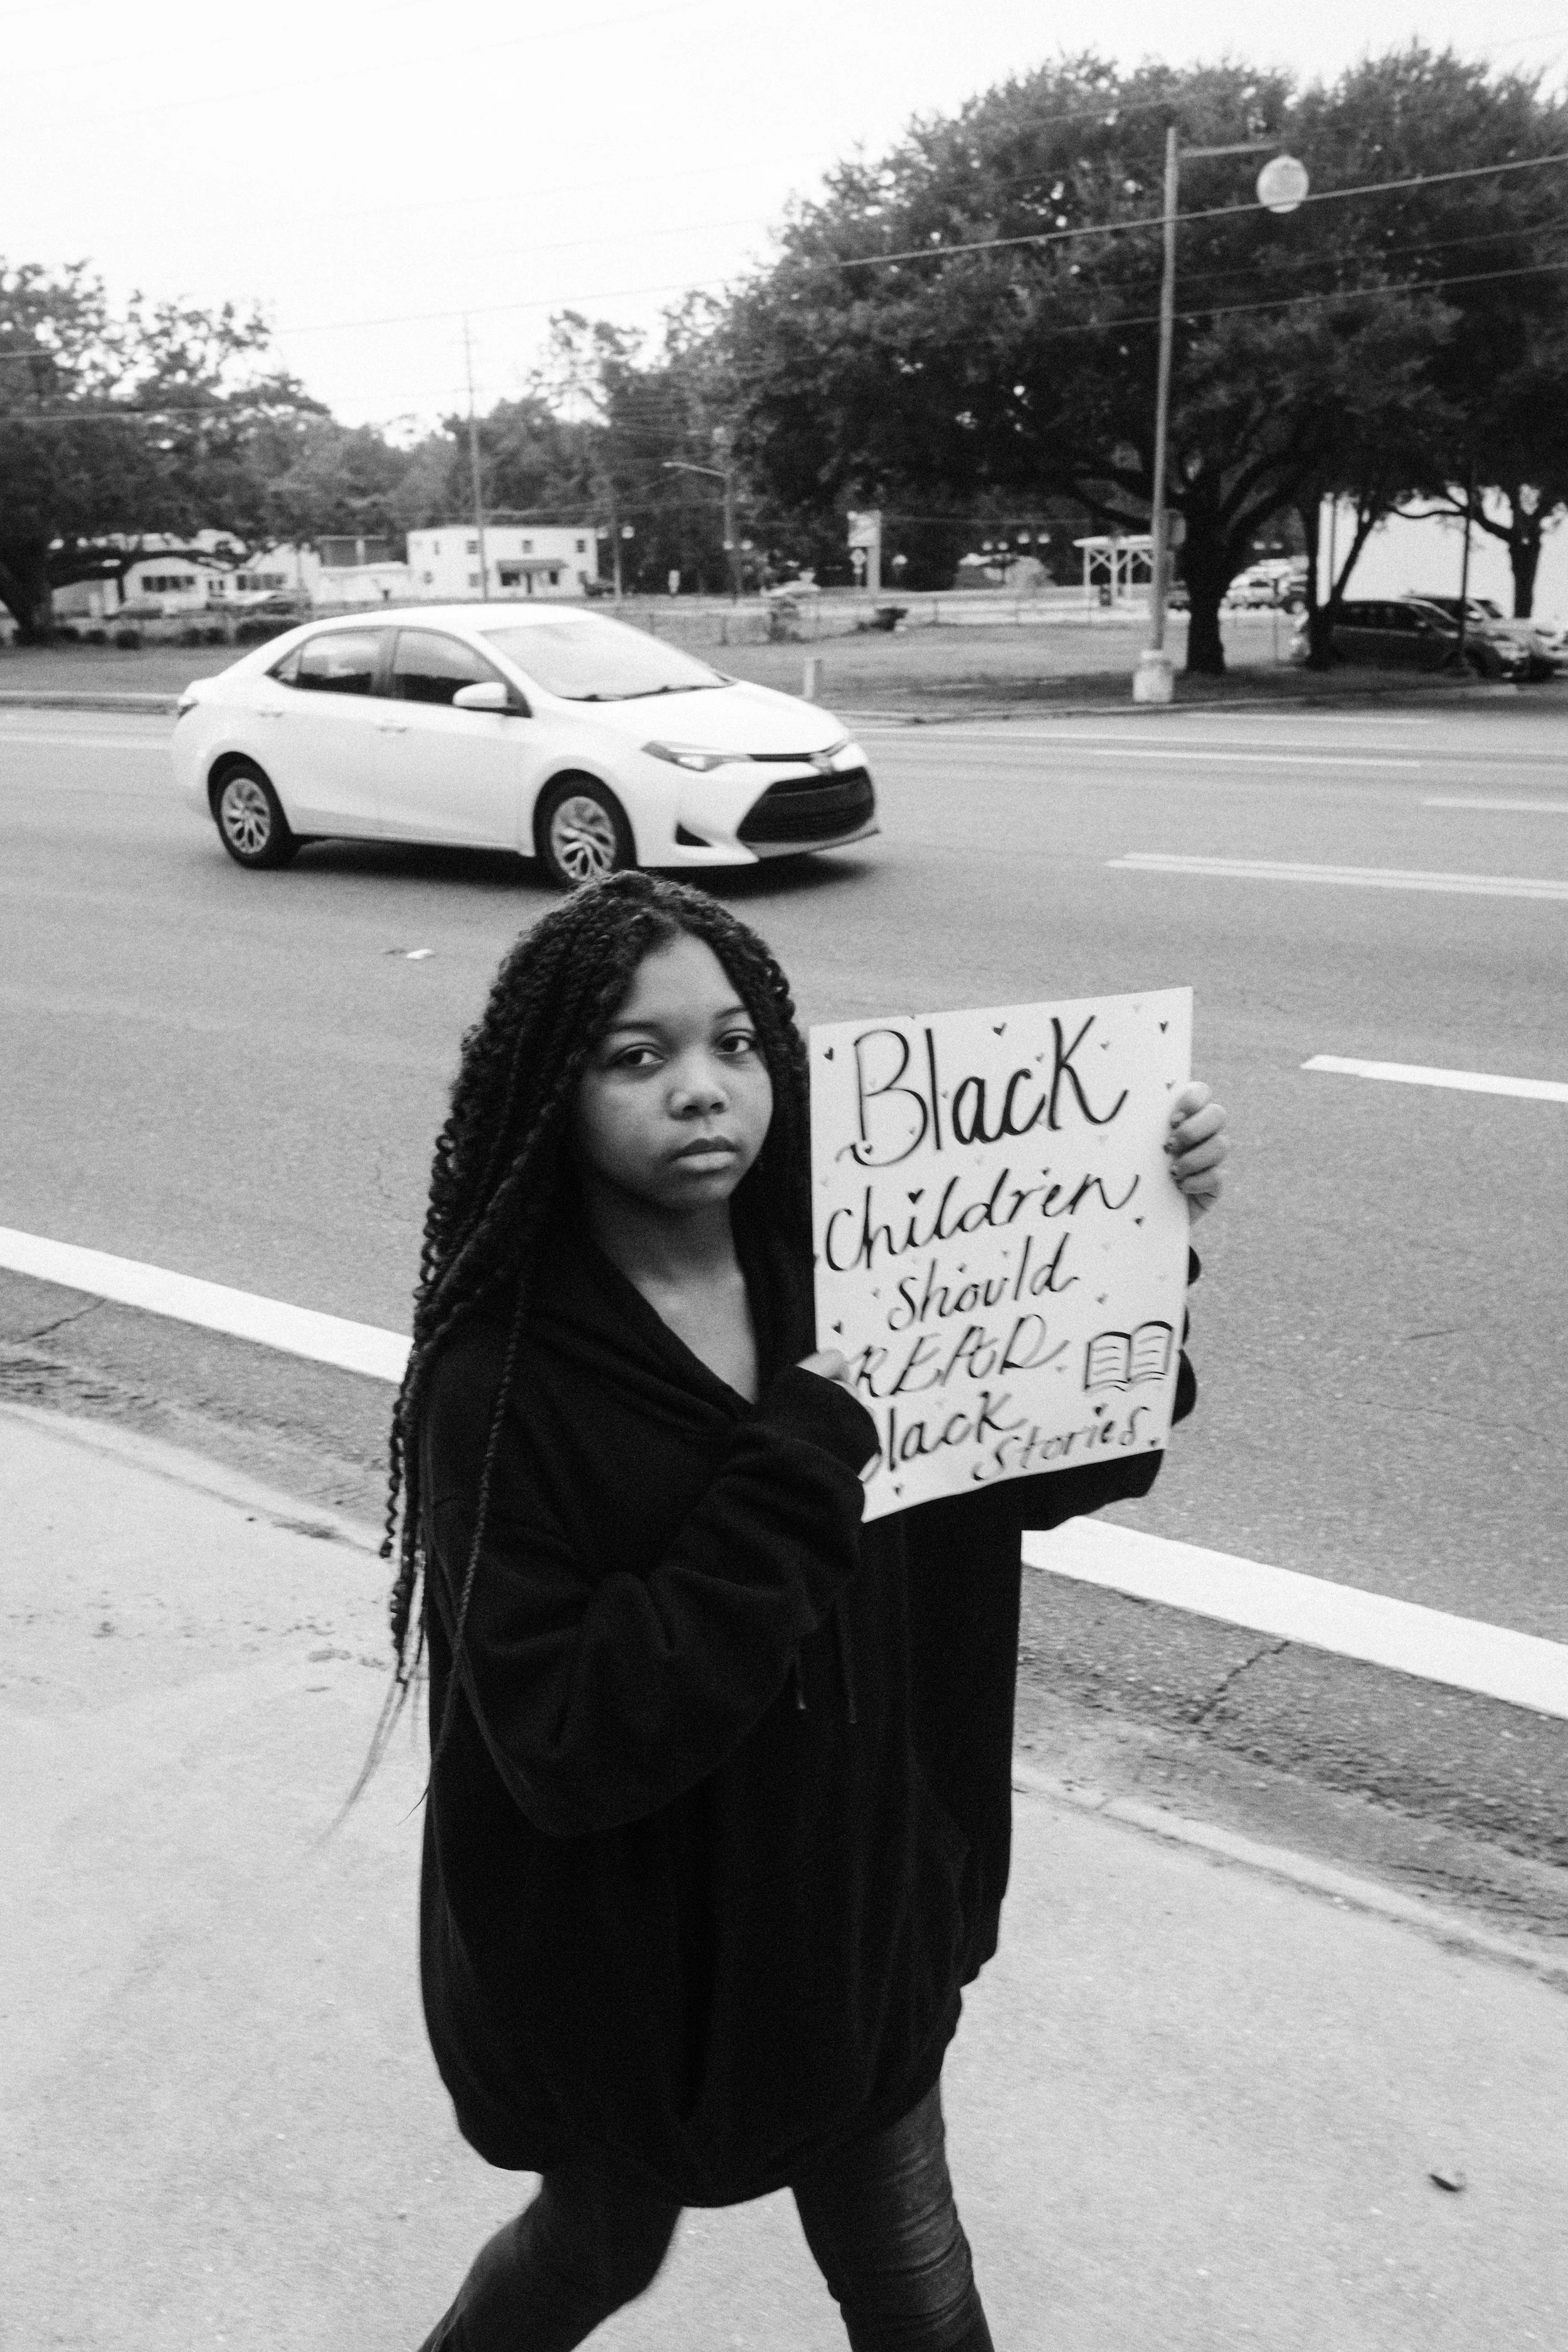 Black
Children
Should
READ
Black
Stories.